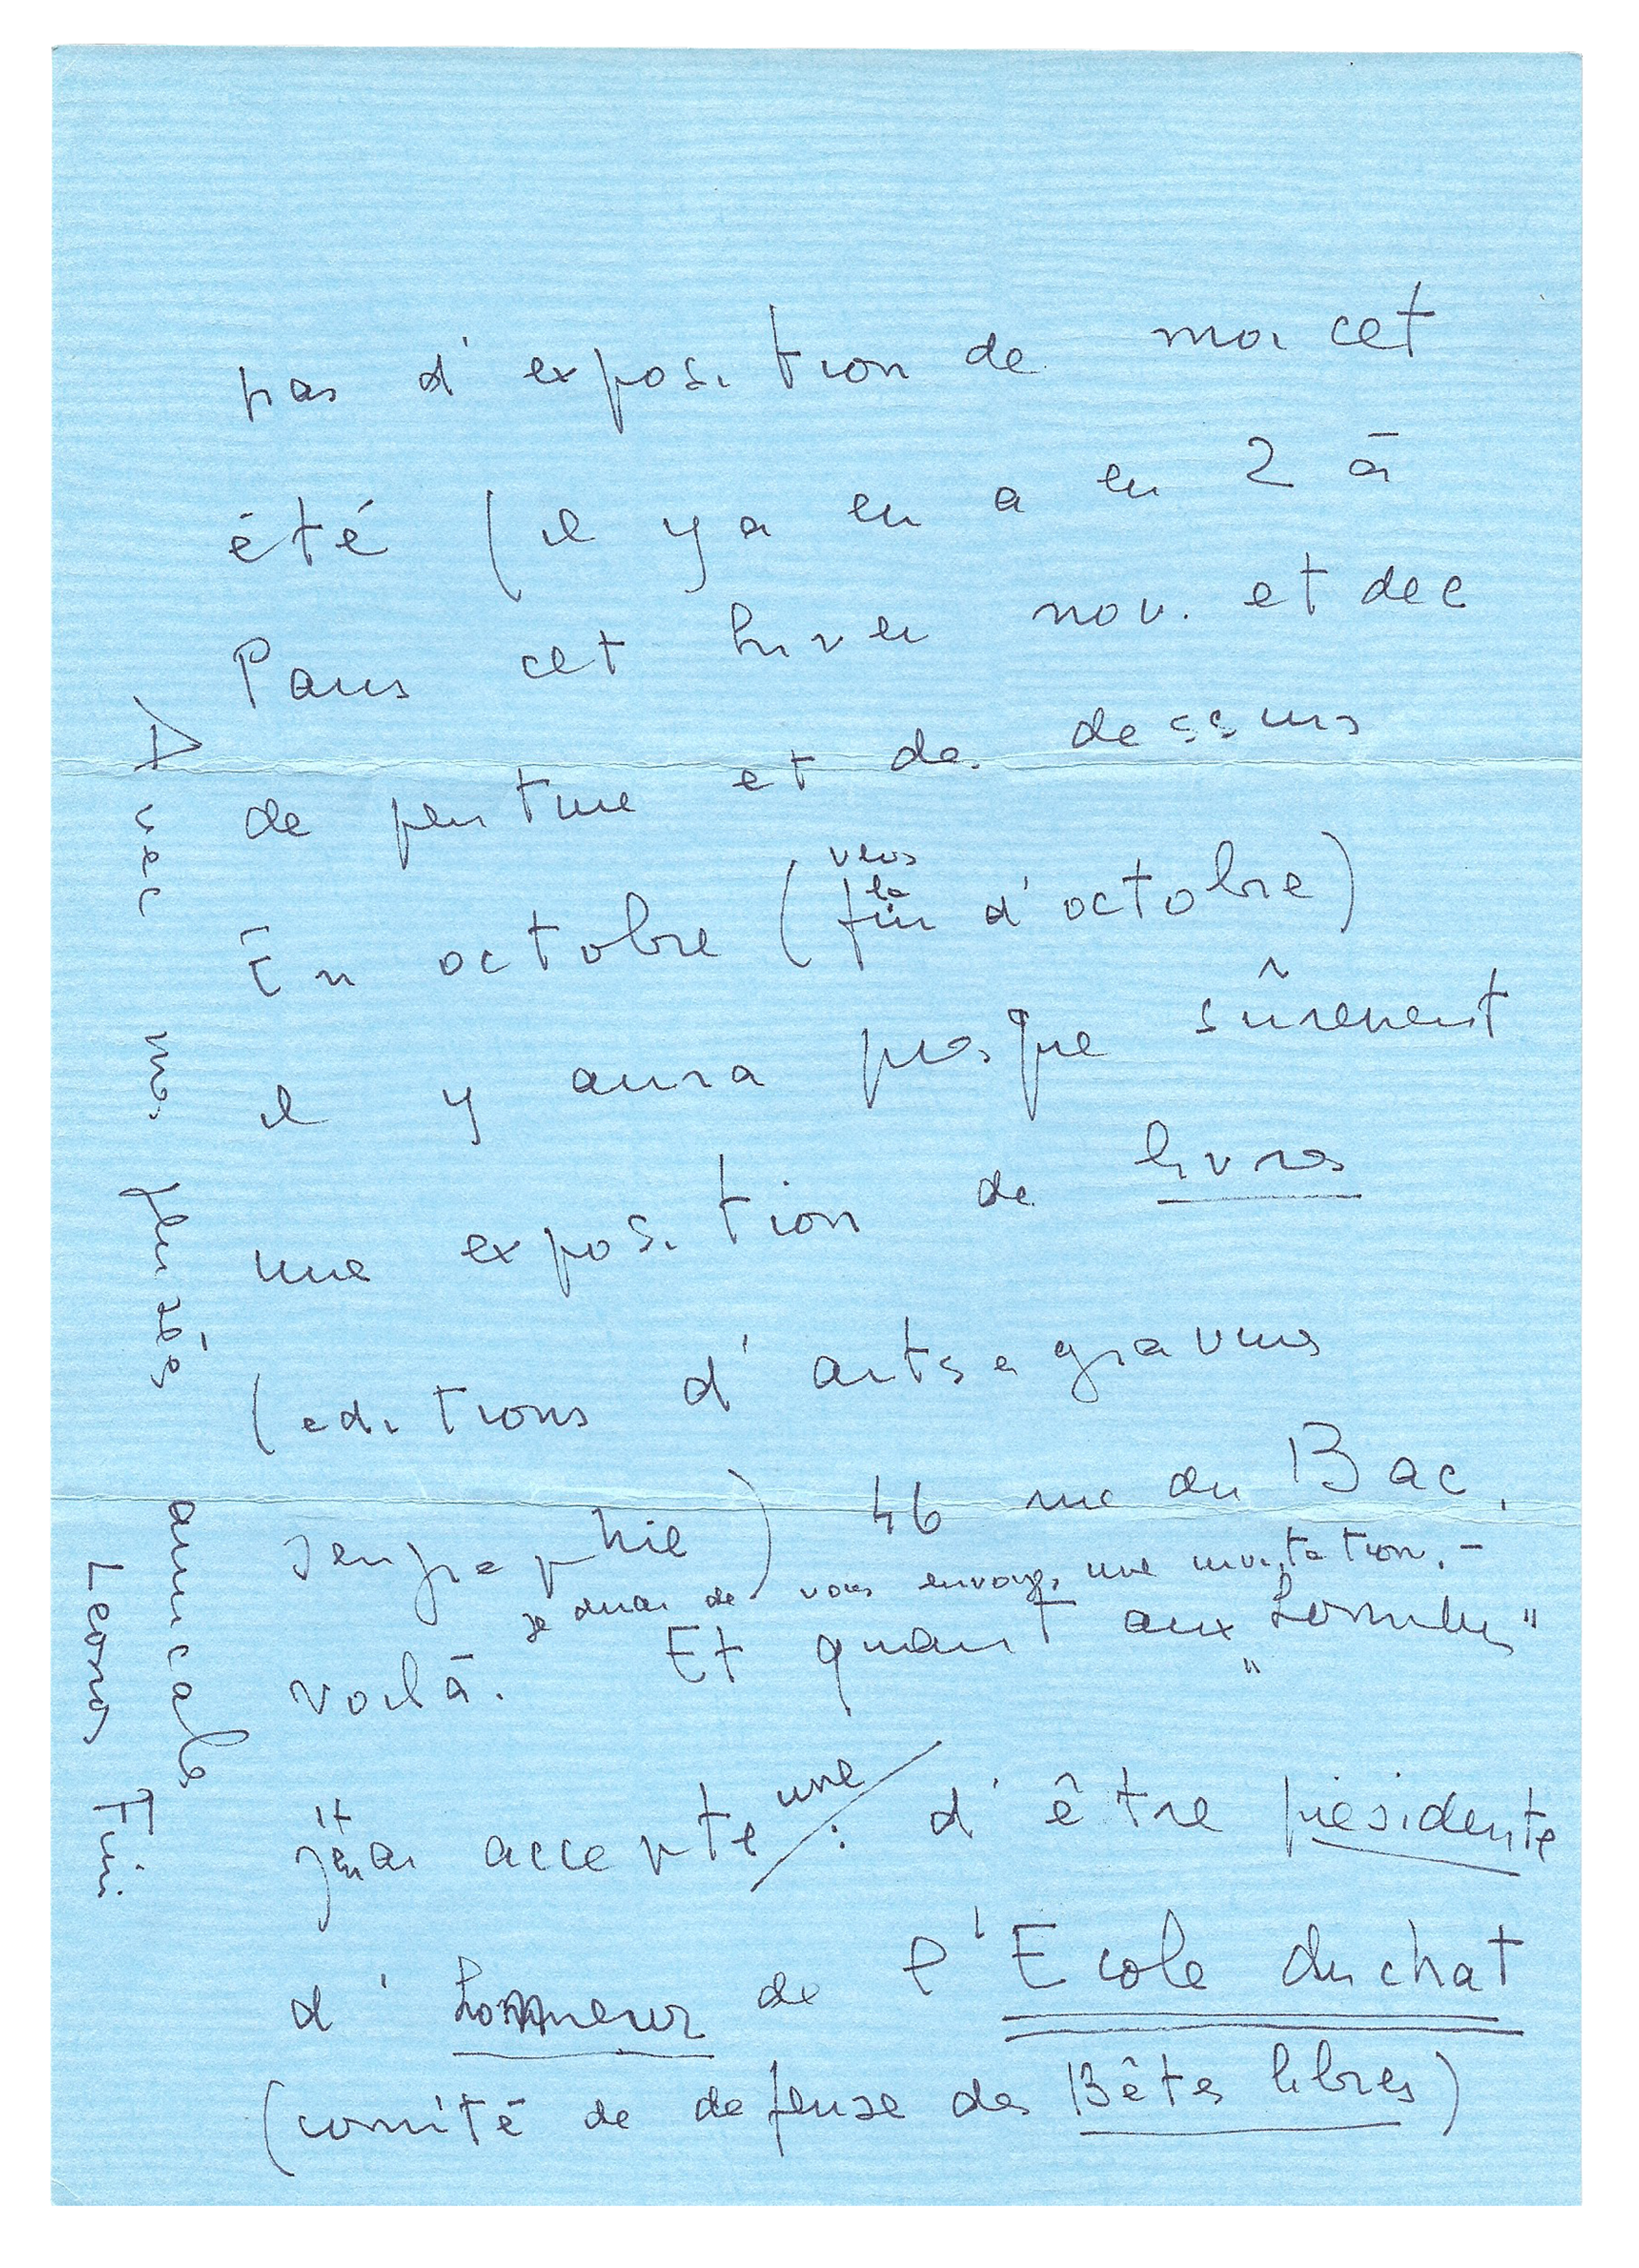 pas d'exposition de moi cet
été (il y a en a eu 2 à
Paris cet hiver nov. et dec
de peinture et de dessins
En octobre (vers la fin d'octobre)
il y aura presque sûrement
une exposition de livres
(editions d'arts e gravures
serigraphie) 46 rue du Bac,
je dirai de vous envoyer une invitation. -
voilà. Et quant aux "honneurs"
j'ai accepté une : d'être présidente
d'honneur de l'Ecole du chat
(comité de defense des Bêtes libres)
Avec ma pensée
amicale
Leonor Fini